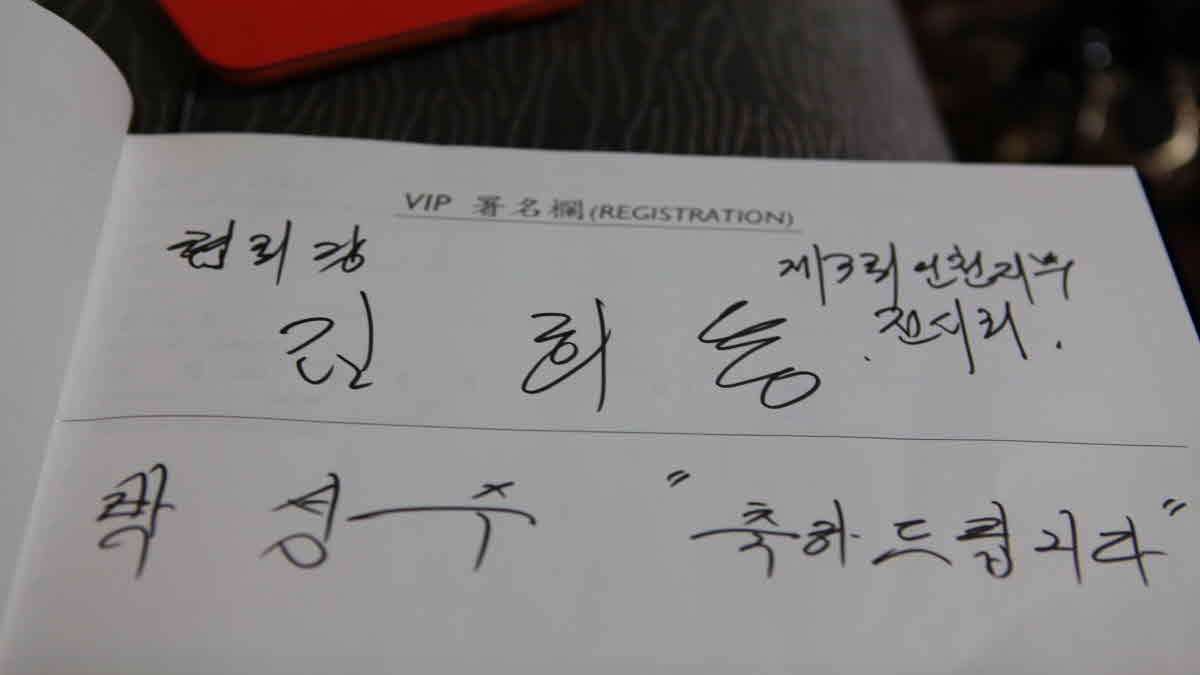 VIP 署名欄(REGISTRATION)
협회장
제3회 인천지부
전시회.
김 희 동
곽 성 주 "축하드립니다"